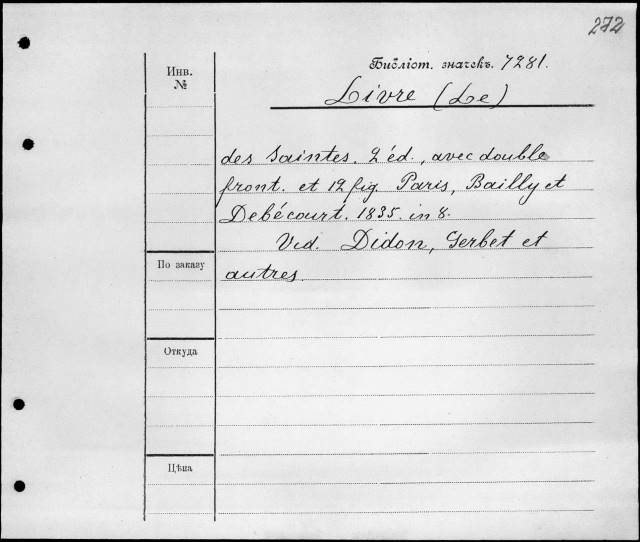 272
Инв.
№
Библіот. значекъ. 7281.
Livre (Le)
des Saintes. 2 éd., avec double
front. et 12 fig Paris, Bailly et
Debécourt. 1835. in 8.
Vid. Didon, Gerbet et
autres.
По заказу
Откуда
Цѣна